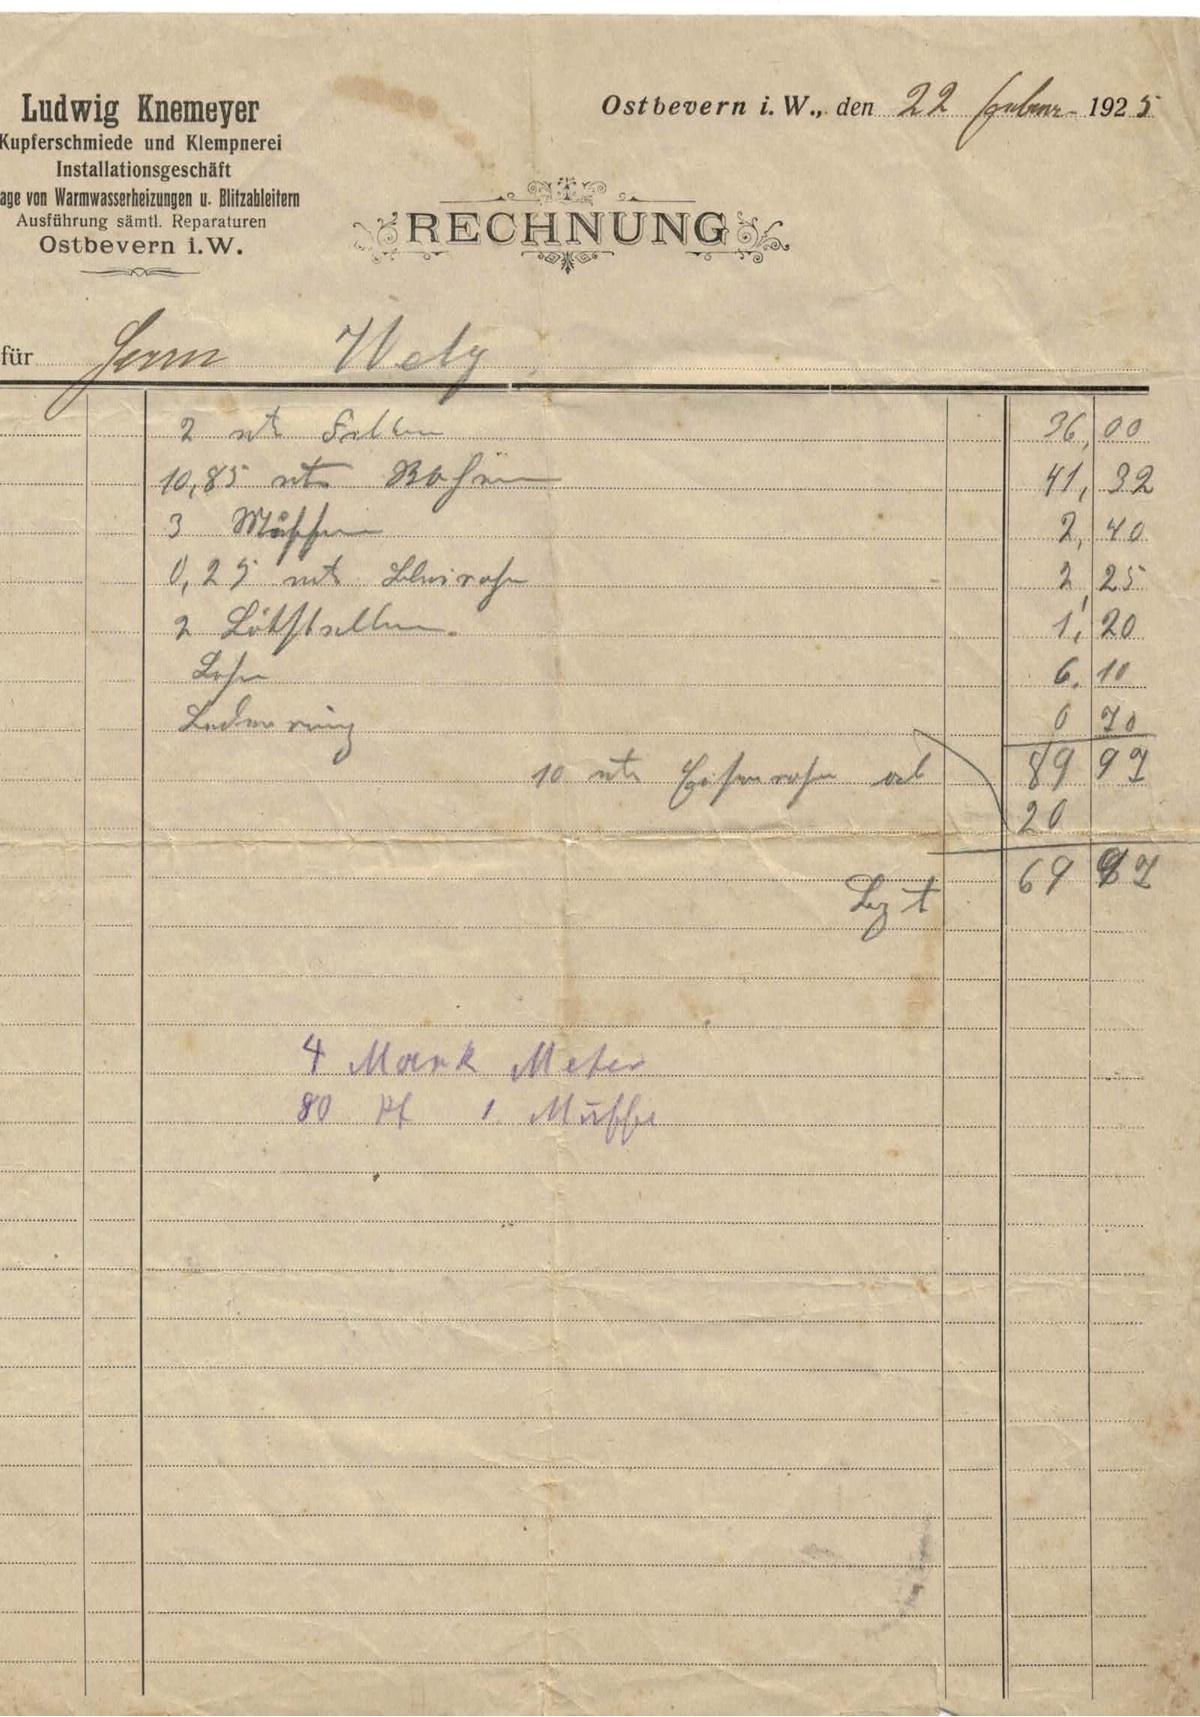 Ludwig Knemeyer
Kupferschmiede und Klempnerei
Installationsgeschäft
age von Warmwasserheizungen u. Blitzableitern
Ausführung sämtl. Reparaturen
Ostbevern i.W.
Ostbevern i. W., den 22 1925
RECHNUNG
für Herrn
2 mtr 36,00
10,85 mtr Rohr 41,32
3 Muffen 2,40
0,25 mtr Bleirohr 2,25
2 Lötstellen. 1,20
Lohn 6.10
Lederring 0 70
89 97
10 mtr Eisenrohr ab
20
69 97
4 Mark Meter
80 Pf 1 Muffe